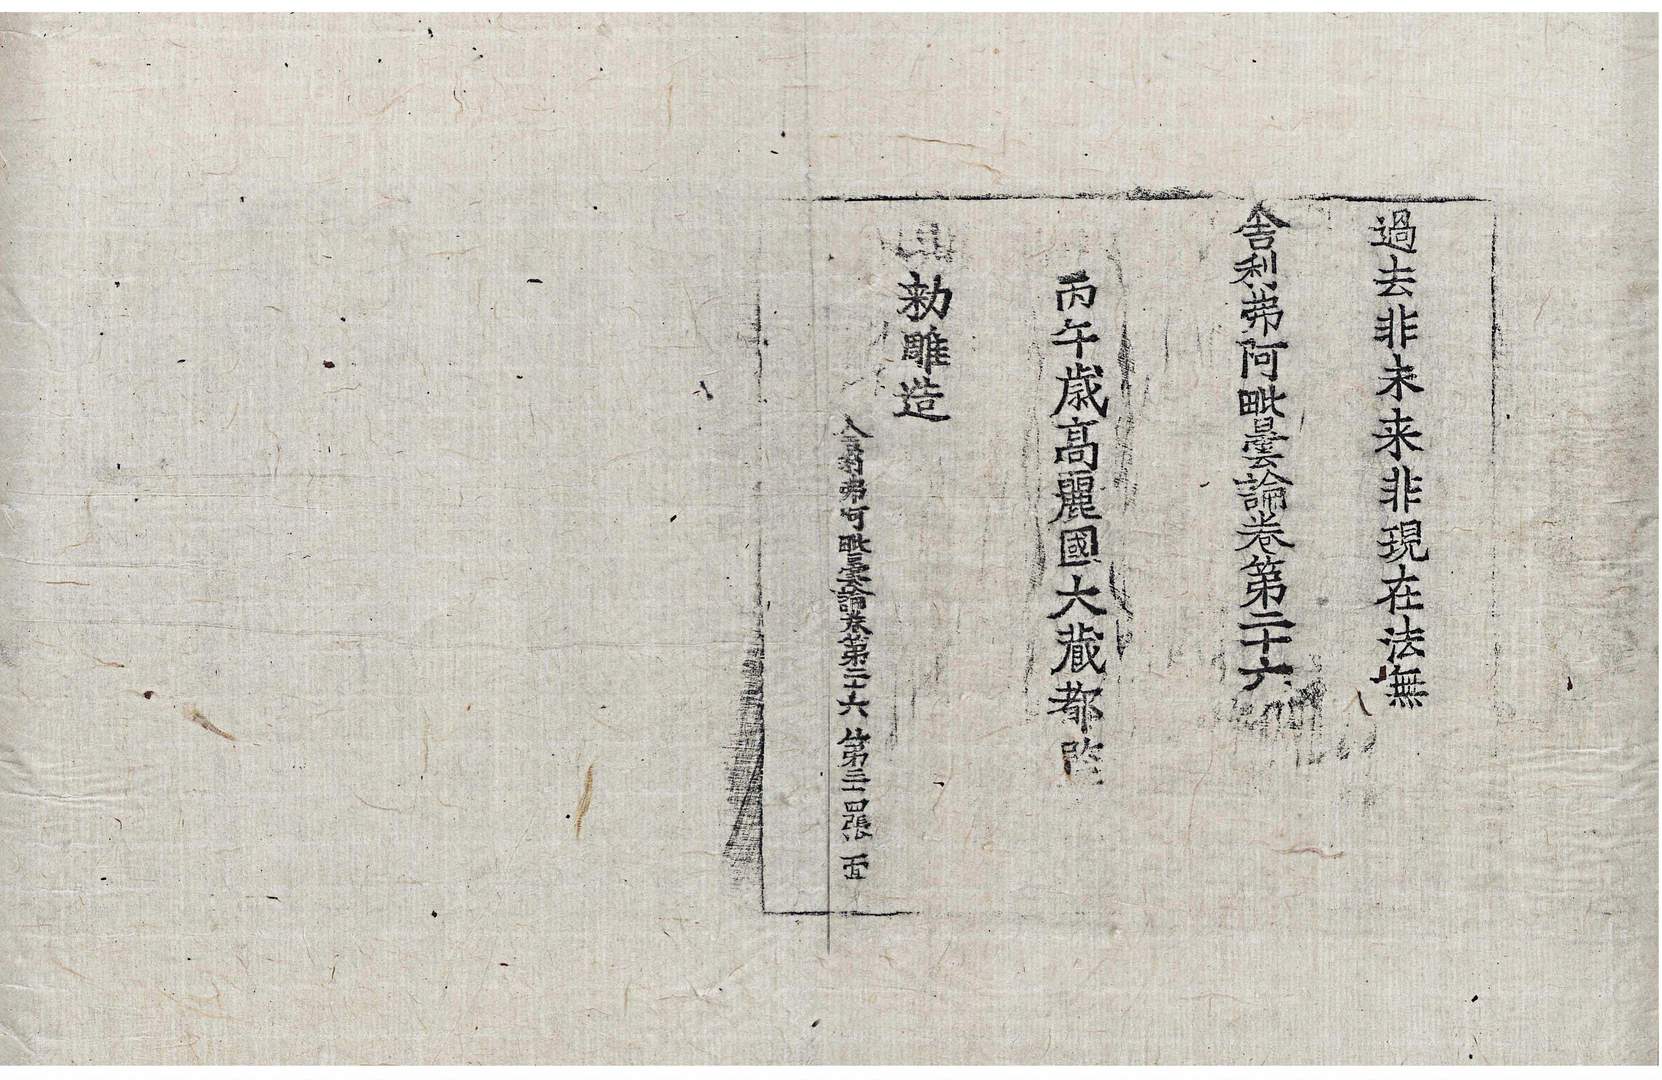 過去非未来非現在法無
舎利弗阿毗曇論卷第二十六
丙午歳髙麗國大蔵都
勑雕造
弗阿毗曇論卷第二十六 第三十四張